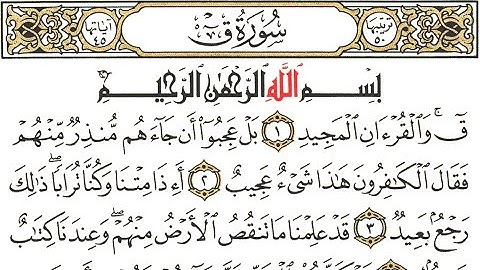 ترتيبها ٥٠ سُورَةُ قٓ آياتها ٤٥
بِسْمِ ٱللَّهِ ٱلرَّحْمَٰنِ ٱلرَّحِيمِ
قٓ ۚ وَٱلْقُرْءَانِ ٱلْمَجِيدِ ١ بَلْ عَجِبُوٓا۟ أَن جَآءَهُم مُّنذِرٌ مِّنْهُمْ
فَقَالَ ٱلْكَٰفِرُونَ هَٰذَا شَىْءٌ عَجِيبٌ ٢ أَءِذَا مِتْنَا وَكُنَّا تُرَابًا ۖ ذَٰلِكَ
رَجْعٌۢ بَعِيدٌ ٣ قَدْ عَلِمْنَا مَا تَنقُصُ ٱلْأَرْضُ مِنْهُمْ ۖ وَعِندَنَا كِتَٰبٌ